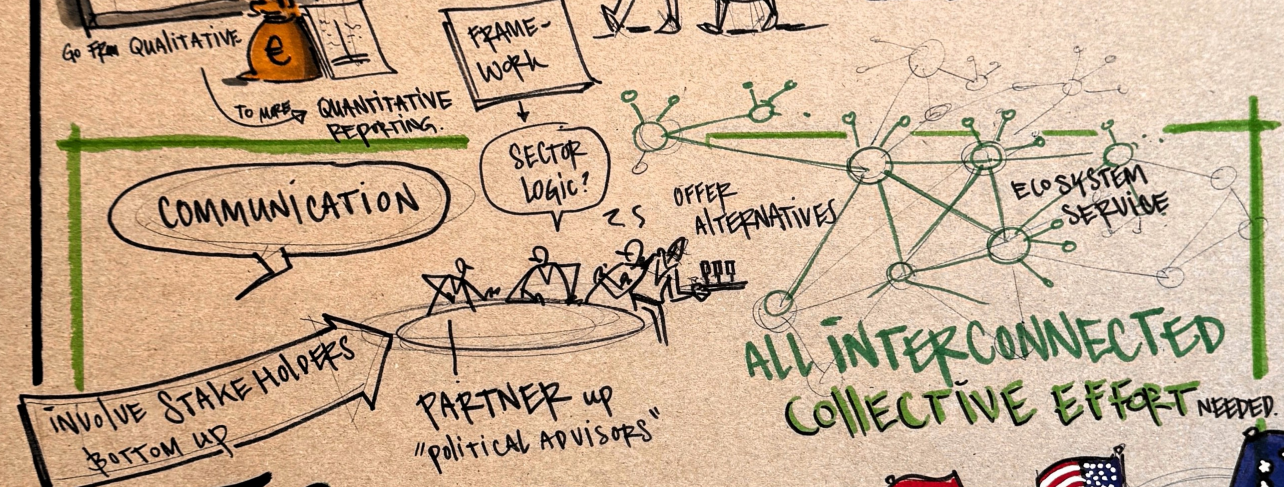 GO FROM QUALITATIVE
€
TO MORE QUANTITATIVE
REPORTING.
FRAME-
WORK
SECTOR
LOGIC?
COMMUNICATION
OFFER
ALTERNATIVES
ECOSYSTEM
SERVICE
INVOLVE STAKEHOLDERS
BOTTOM UP
PARTNER up
"political ADVISORS"
ALL iNTERCONNECTED
COllECTIVE EFFORT NEEDED.